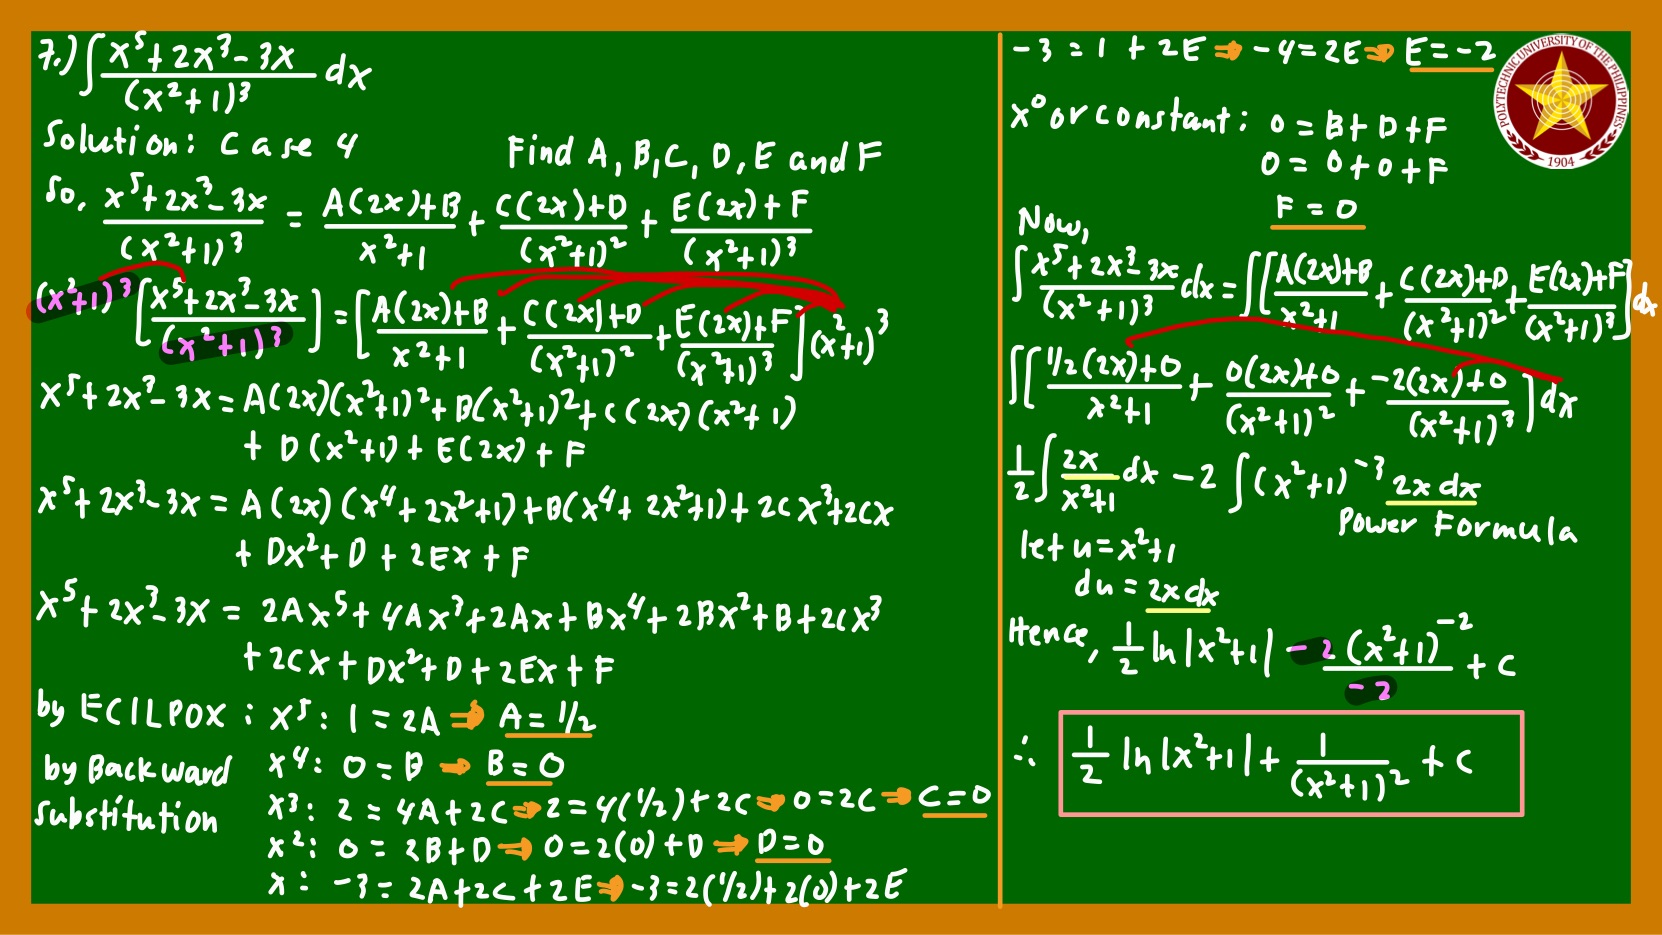 7.) ∫ x⁵+2x³-3x / (x²+1)³ dx
Solution: Case 4
Find A, B, C, D, E and F
So, x⁵+2x³-3x / (x²+1)³ = A(2x)+B / x²+1 + C(2x)+D / (x²+1)² + E(2x)+F / (x²+1)³
(x²+1)³ [x⁵+2x³-3x / (x²+1)³] = [A(2x)+B / x²+1 + C(2x)+D / (x²+1)² + E(2x)+F / (x²+1)³](x²+1)³
x⁵+2x³-3x = A(2x)(x²+1)²+B(x²+1)²+C(2x)(x²+1)
+ D(x²+1)+E(2x)+F
x⁵+2x³-3x = A(2x)(x⁴+2x²+1)+B(x⁴+2x²+1)+2Cx³+2Cx
+ Dx²+D+2Ex+F
x⁵+2x³-3x = 2Ax⁵+4Ax³+2Ax+Bx⁴+2Bx²+B+2Cx³
+2Cx+Dx²+D+2Ex+F
by ECILPOX : x⁵: 1=2A ⇒ A=1/2
by Backward
substitution
x⁴: 0=B ⇒ B=0
x³: 2=4A+2C ⇒ 2=4(1/2)+2C ⇒ 0=2C ⇒ C=0
x²: 0=2B+D ⇒ 0=2(0)+D ⇒ D=0
x: -3=2A+2C+2E ⇒ -3=2(1/2)+2(0)+2E
-3=1+2E ⇒ -4=2E ⇒ E=-2
x⁰ or constant: 0=B+D+F
0=0+0+F
F=0
Now,
∫ x⁵+2x³-3x / (x²+1)³ dx = ∫[A(2x)+B / x²+1 + C(2x)+D / (x²+1)² + E(2x)+F / (x²+1)³]dx
∫[1/2(2x)+0 / x²+1 + 0(2x)+0 / (x²+1)² + -2(2x)+0 / (x²+1)³]dx
1/2 ∫ 2x / x²+1 dx - 2 ∫(x²+1)⁻³ 2x dx
Power Formula
let u=x²+1
du=2x dx
Hence, 1/2 ln|x²+1| - 2(x²+1)⁻² / -2 + C
∴ 1/2 ln|x²+1| + 1 / (x²+1)² + C
POLYTECHNIC UNIVERSITY OF THE PHILIPPINES
1904